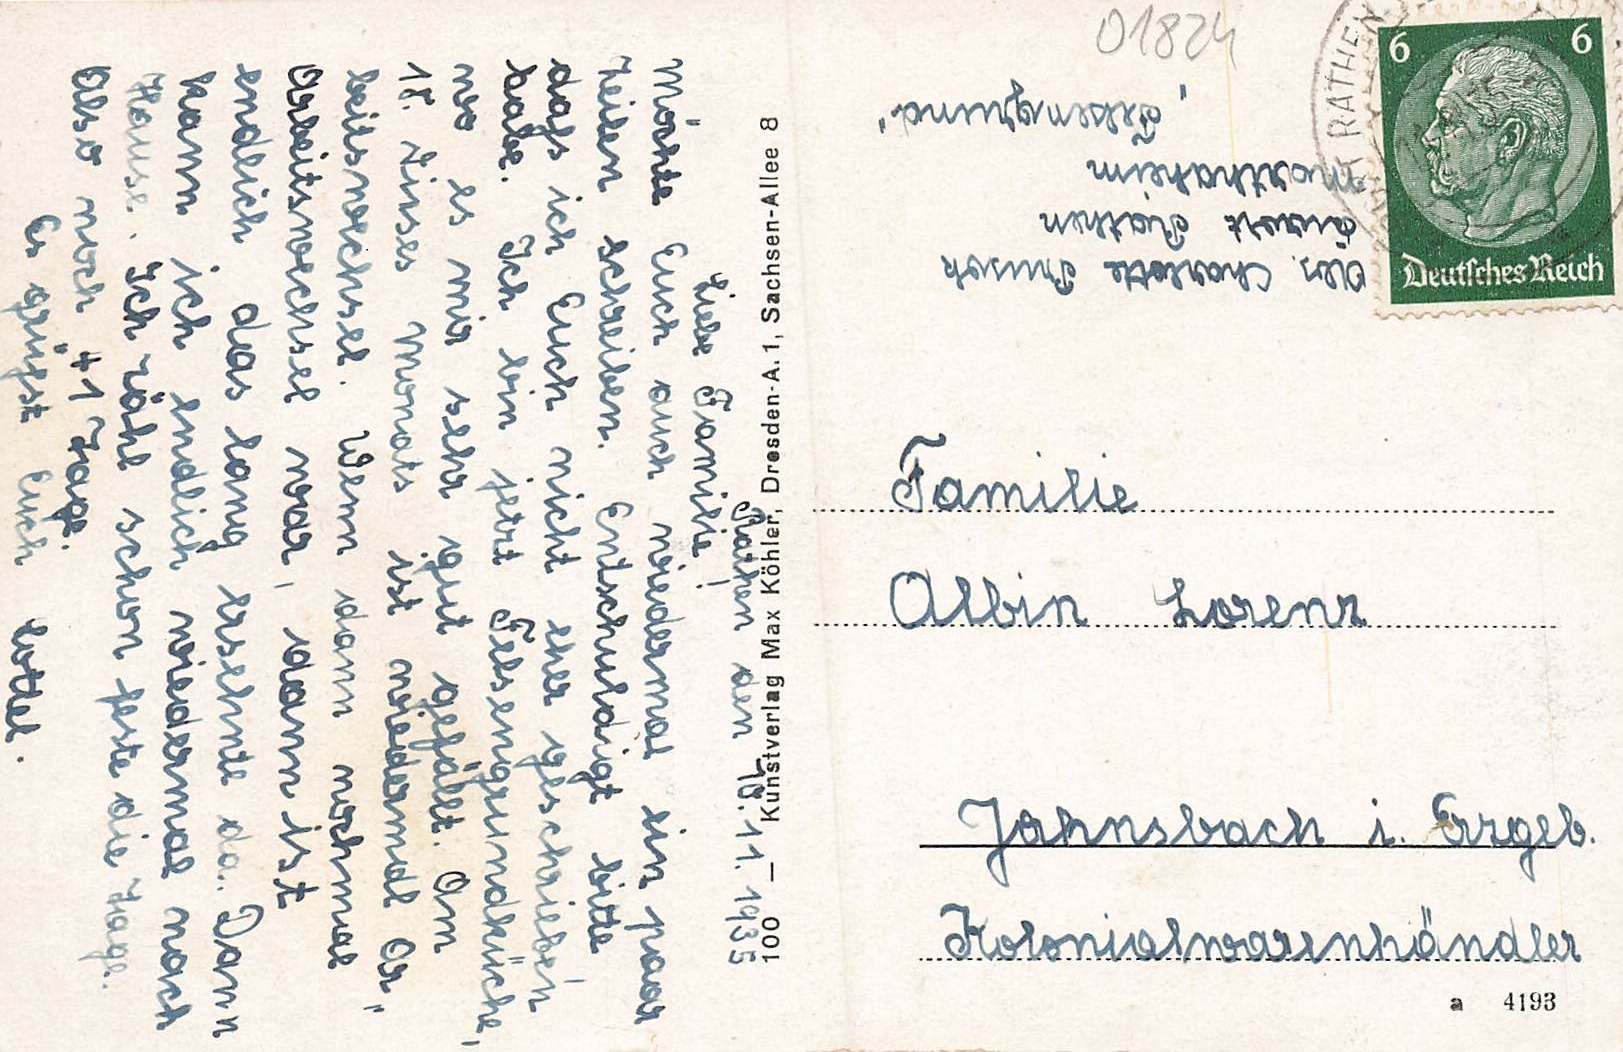 Rathen den 10.11.1935
Liebe Familie!
Möchte Euch auch wiedermal ein paar
Zeilen schreiben. Entschuldigt bitte
daß ich Euch nicht eher geschrieben
habe. Ich bin jetzt Felsengrundküche,
wo es mir sehr gut gefällt. Am
18. dieses Monats ist wiedermal Ar„
beitswechsel. Wenn dann nochmal
Arbeitswechsel war, dann ist
endlich das lang ersehnte da. Dann
kann ich endlich wiedermal nach
Hause. Ich zähl schon feste die Tage.
Also noch 41 Tage.
Es grüßt Euch Lottel.
100 — Kunstverlag Max Köhler, Dresden-A. 1, Sachsen-Allee 8
01824
Abs. Charlotte
Kurort Rathen
Marthaheim
„Felsengrund"
KURORT RATHEN
6 6
Deutsches Reich
Familie
Albin Lorenz
Jahnsbach i. Erzgeb.
Kolonialwarenhändler
a 4193